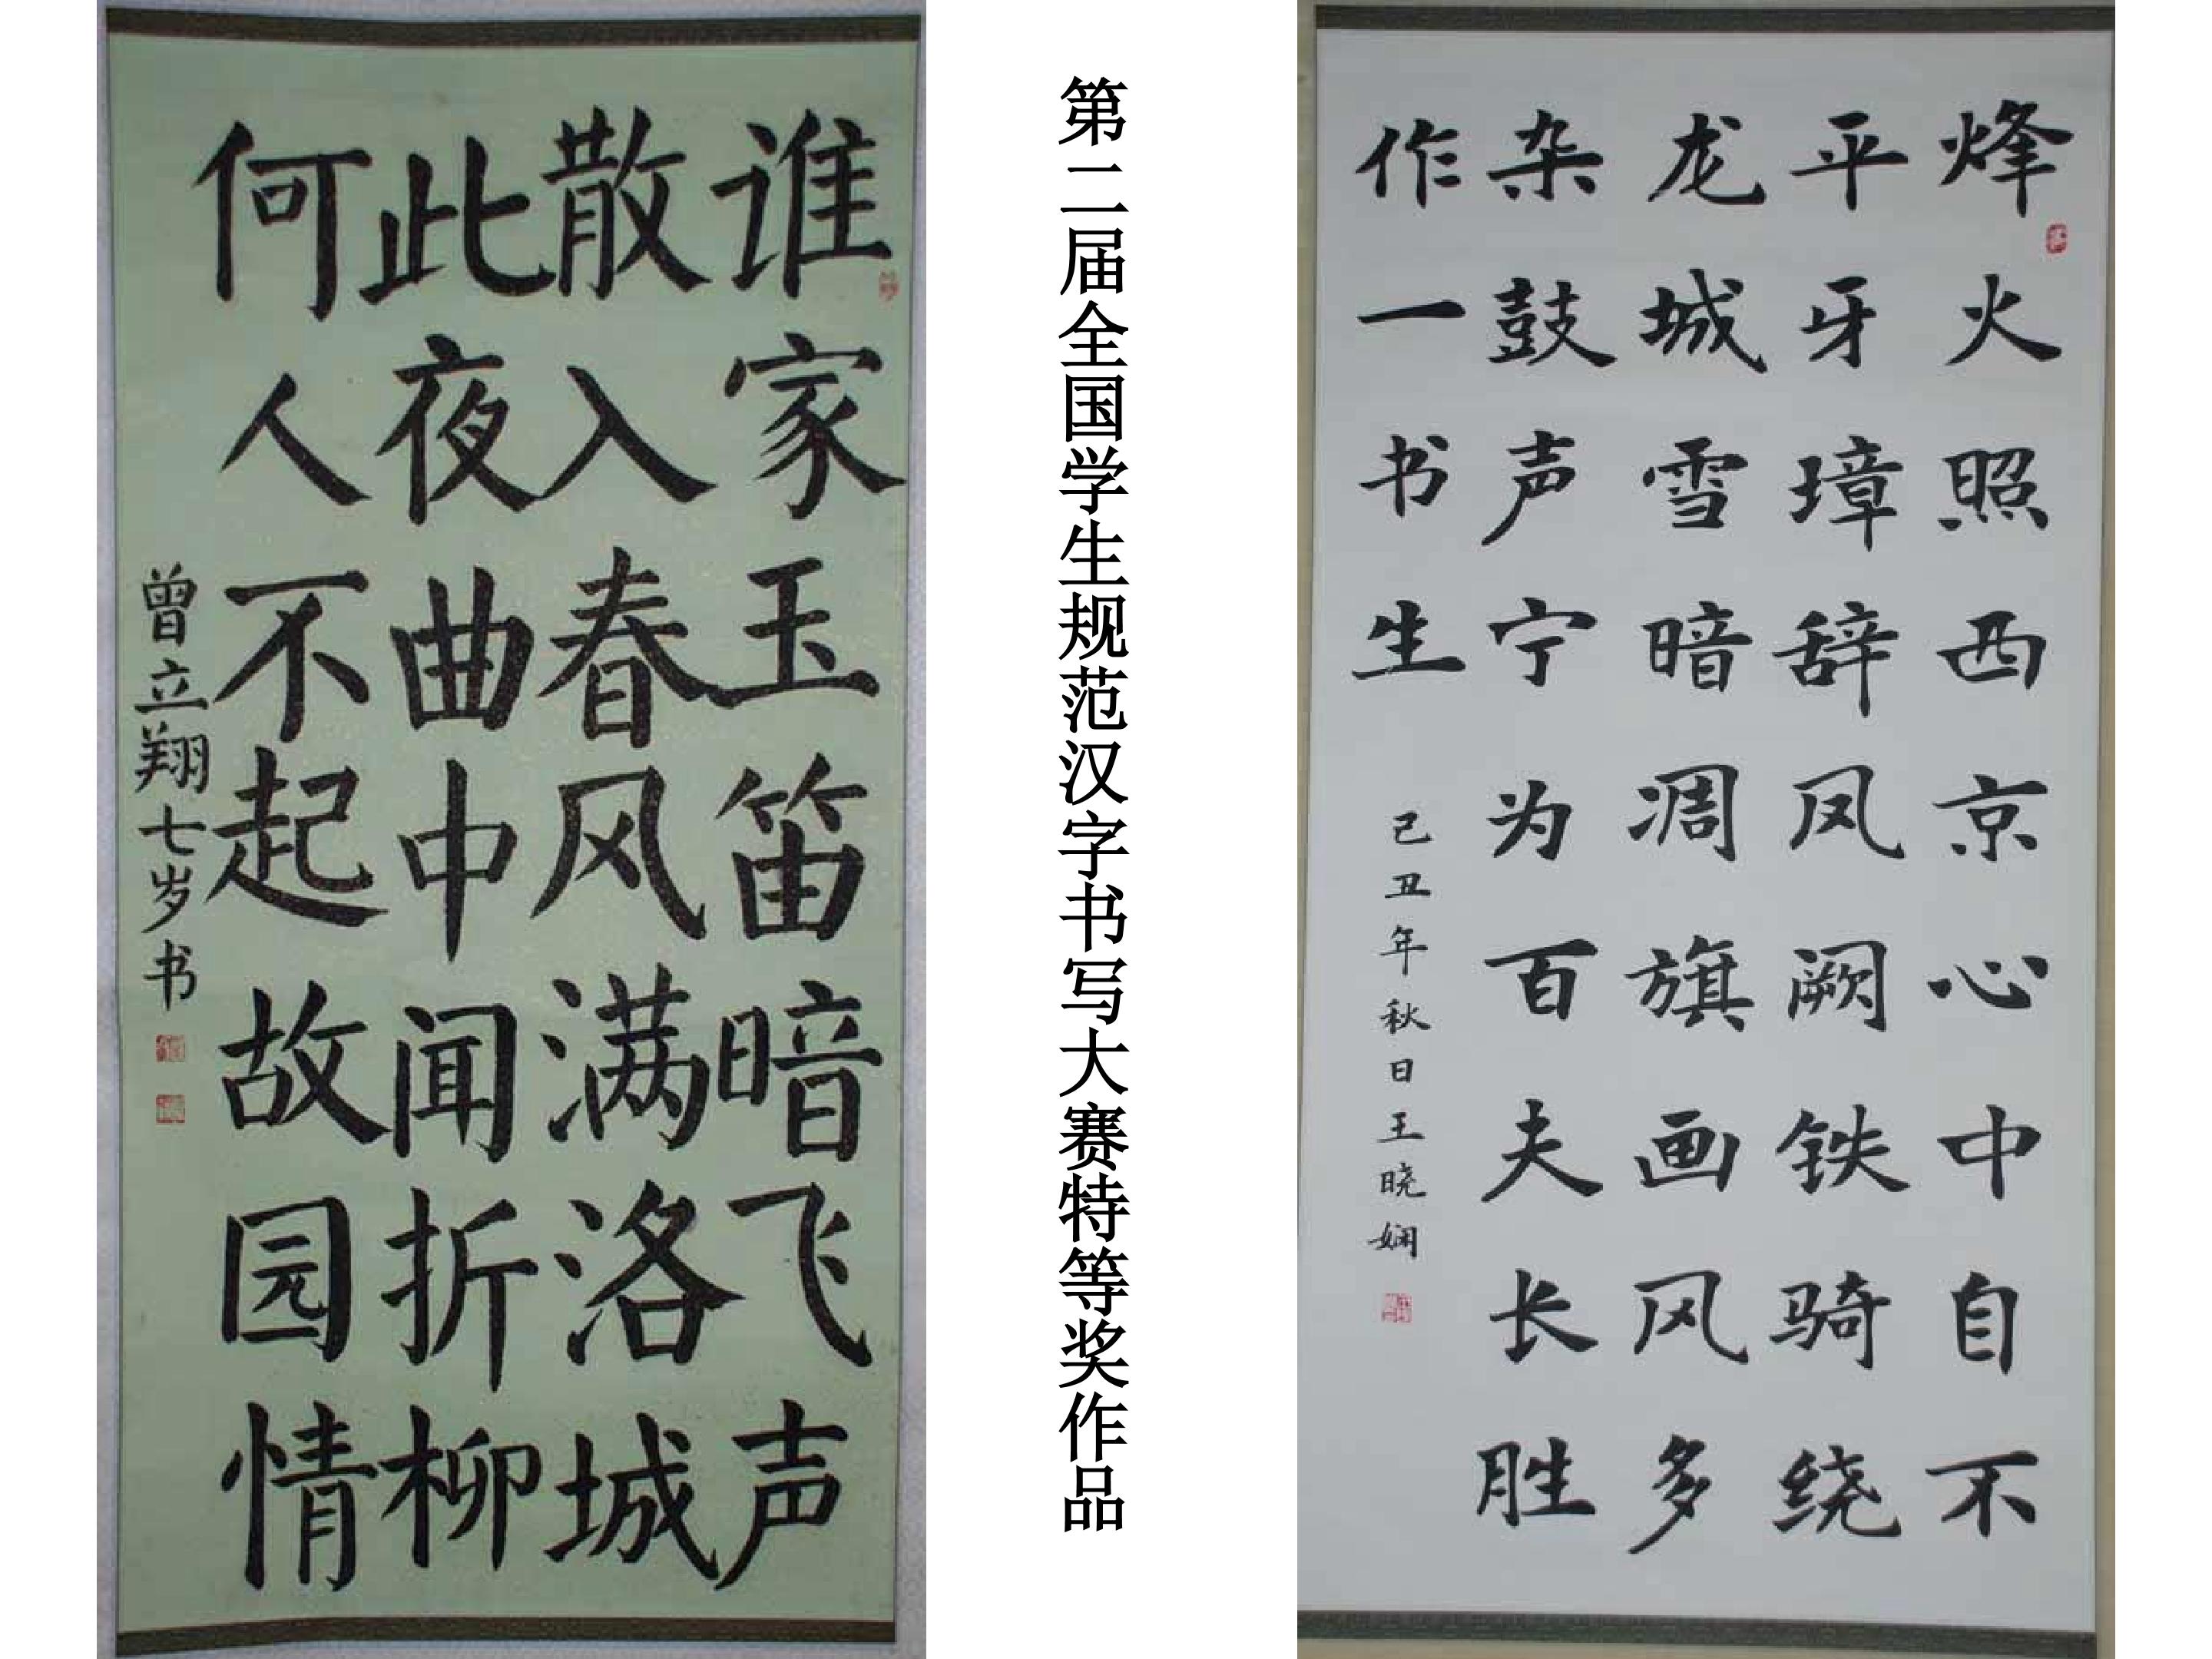 烽火照西京心中自不
平牙璋辞凤阙铁骑绕
龙城雪暗凋旗画风多
杂鼓声宁为百夫长胜
作一书生
己丑年秋日王晓娴
第二届全国学生规范汉字书写大赛特等奖作品
谁家玉笛暗飞声
散入春风满洛城
此夜曲中闻折柳
何人不起故园情
曾立翔七岁书